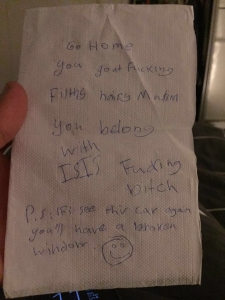 Go Home
you goat fucking
Filthy hairy Muslim
You belong
with
ISIS Fucking
bitch
P.S. if i see this car again
you'll have a broken
window.